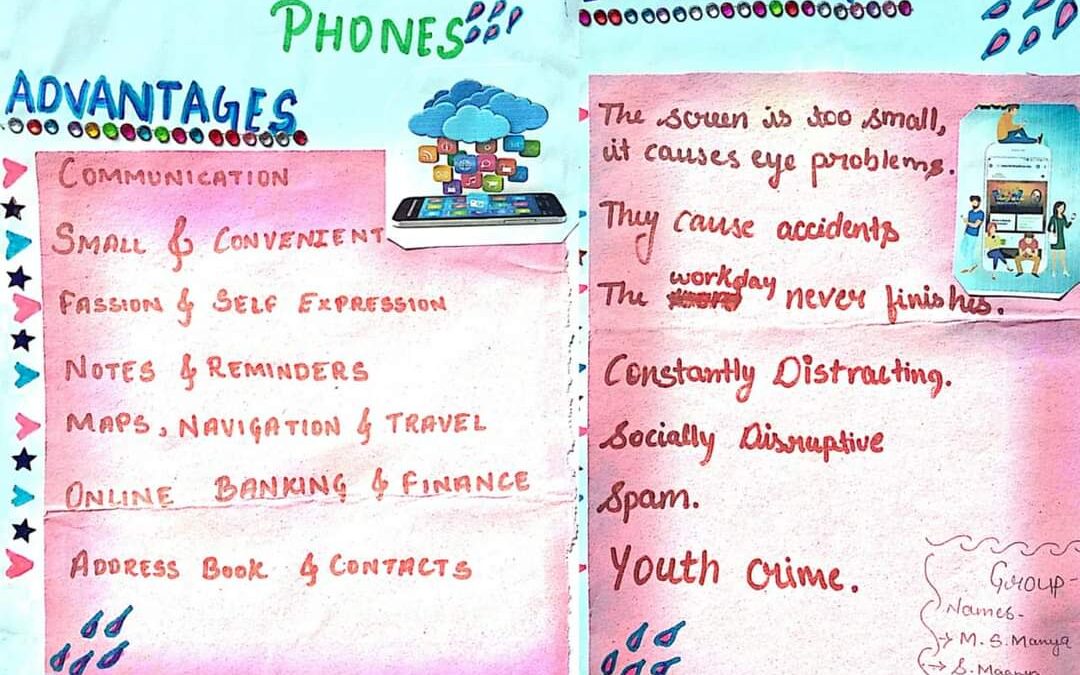 PHONES
ADVANTAGES
COMMUNICATION
SMALL & CONVENIENT
FASSION & SELF EXPRESSION
NOTES & REMINDERS
MAPS, NAVIGATION & TRAVEL
ONLINE BANKING & FINANCE
ADDRESS BOOK & CONTACTS
The screen is too small,
it causes eye problems.
They cause accidents
The workday never finishes.
Constantly Distracting.
Socially Disruptive
Spam.
Youth crime.
GROUP-
Names-
→ M. S. Manya
→ S.